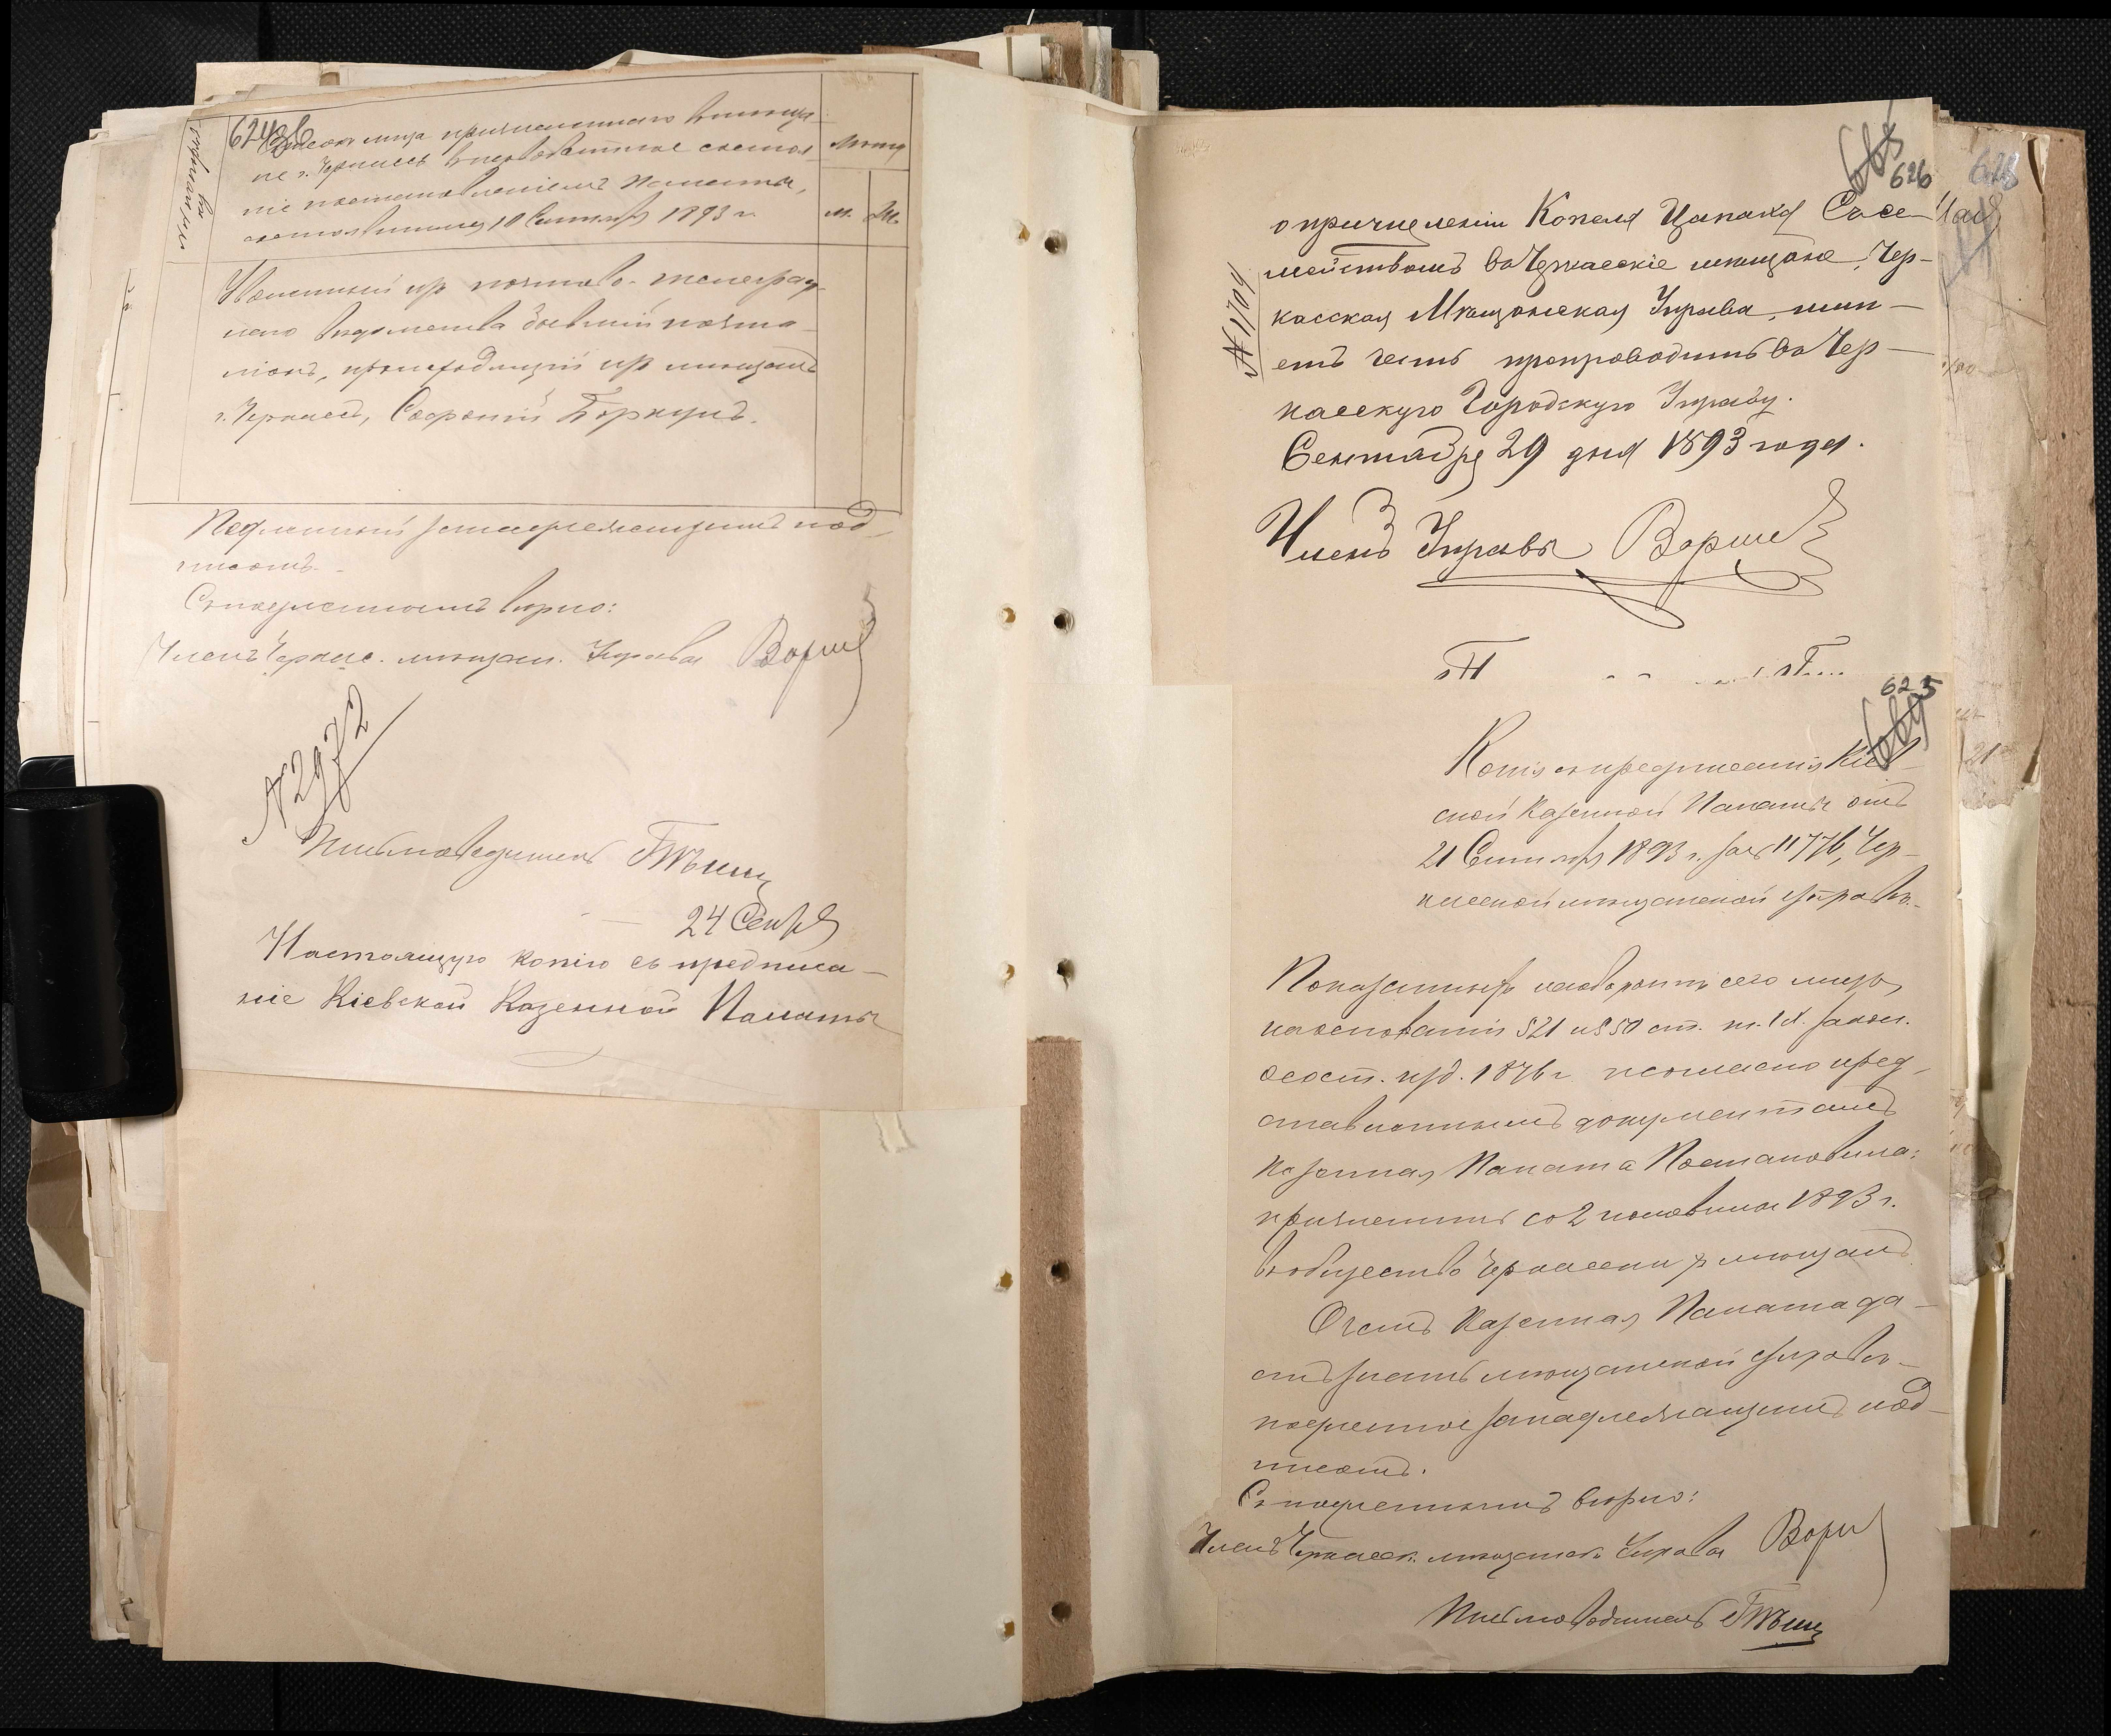 624 об
Списокъ лица причисленнаго въ мѣща-
не г. Черкассъ въ неподатное состоя-
ніе постановленіемъ Палаты,
состоявшимся 10 Сентября 1893 г.
м.
Уволенный изъ почтово-телеграф-
наго вѣдомства бывшій почта-
ліонъ, происходящій изъ мѣщанъ
г. Черкассъ, Софроній
Подлинный за надлежащимъ под-
писомъ.
Съ подлиннымъ вѣрно:
Членъ Черкас. мѣщан. Управы
N 2972
Письмоводитель
24 Сент
Настоящую копію съ предписа-
ніе Кіевской Казенной Палаты
626
о причисленіи Копеля Цапака Съ се-
мействомъ въ Черкасскіе мѣщане, Чер-
№ 1709
касская Мѣщанская Управа, имѣ-
етъ честь препроводить въ Чер-
касскую Городскую Управу.
Сентября 29 дня 1893 года.
Членъ Управы
625
Копія съ предписанія Кіев-
ской Казенной Палаты отъ
21 Сентября 1893 г. за № 11776, Чер-
касской мѣщанской управѣ.
Показаннаго на оборотѣ сего лица,
на основаніи 521 и 550 ст. т. IX закон.
о сост. изд. 1876 г. и согласно пред-
ставленнымъ документамъ
Казенная Палата Постановила:
причислить со 2 половины 1893 г.
въ общество Черкасскихъ мѣщанъ
О чемъ Казенная Палата да-
етъ знать мѣщанской управѣ-
подлинное за надлежащимъ под-
писомъ.
Съ подлиннымъ вѣрно:
Членъ Черкасск. мѣщанск. Управы
Письмоводитель